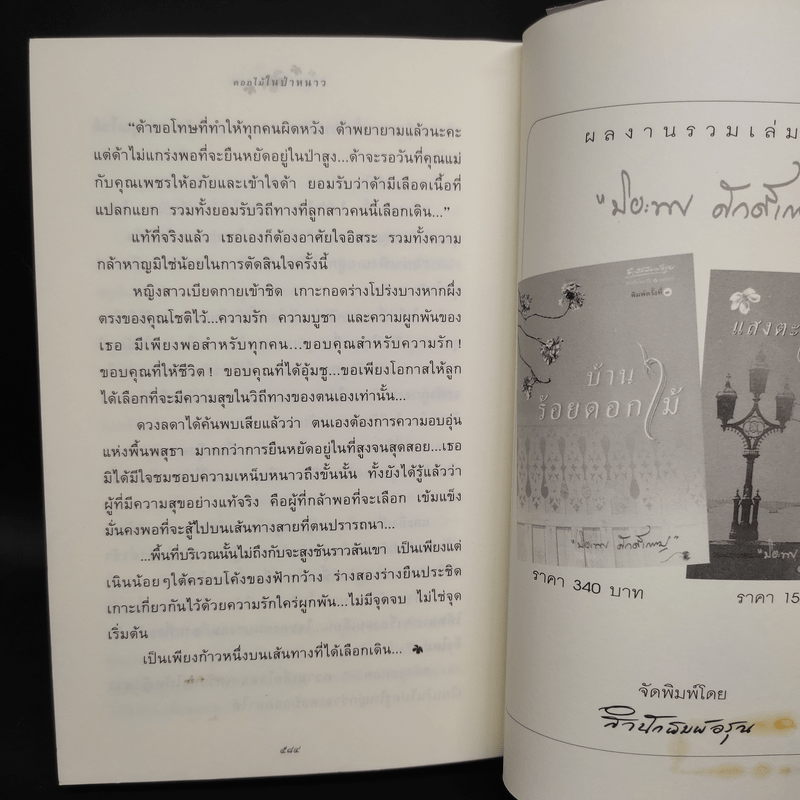 ดอกไม้ในป่าหนาว
“ด้าขอโทษที่ทำให้ทุกคนผิดหวัง ด้าพยายามแล้วนะคะ
แต่ด้าไม่แกร่งพอที่จะยืนหยัดอยู่ในป่าสูง...ด้าจะรอวันที่คุณแม่
กับคุณเพชรให้อภัยและเข้าใจด้า ยอมรับว่าด้ามีเลือดเนื้อที่
แปลกแยก รวมทั้งยอมรับวิถีทางที่ลูกสาวคนนี้เลือกเดิน...”
แท้ที่จริงแล้ว เธอเองก็ต้องอาศัยใจอิสระ รวมทั้งความ
กล้าหาญมิใช่น้อยในการตัดสินใจครั้งนี้
หญิงสาวเบียดกายเข้าชิด เกาะกอดร่างโปร่งบางหากผึ่ง
ตรงของคุณโชติไว้...ความรัก ความบูชา และความผูกพันของ
เธอ มีเพียงพอสำหรับทุกคน...ขอบคุณสำหรับความรัก!
ขอบคุณที่ให้ชีวิต! ขอบคุณที่ได้อุ้มชู...ขอเพียงโอกาสให้ลูก
ได้เลือกที่จะมีความสุขในวิถีทางของตนเองเท่านั้น...
ดวงลดาได้ค้นพบเสียแล้วว่า ตนเองต้องการความอบอุ่น
แห่งพื้นพสุธา มากกว่าการยืนหยัดอยู่ในที่สูงจนสุดสอย...เธอ
มิได้มีใจชมชอบความเหน็บหนาวถึงขั้นนั้น ทั้งยังได้รู้แล้วว่า
ผู้ที่มีความสุขอย่างแท้จริง คือผู้ที่กล้าพอที่จะเลือก เข้มแข็ง
มั่นคงพอที่จะสู้ไปบนเส้นทางสายที่ตนปรารถนา...
...พื้นที่บริเวณนั้นไม่ถึงกับจะสูงชันราวสันเขา เป็นเพียงแต่
เนินน้อยๆใต้ครอบโค้งของฟ้ากว้าง ร่างสองร่างยืนประชิด
เกาะเกี่ยวกันไว้ด้วยความรักใคร่ผูกพัน...ไม่มีจุดจบ ไม่ใช่จุด
เริ่มต้น
เป็นเพียงก้าวหนึ่งบนเส้นทางที่ได้เลือกเดิน...
๕๘๔
ผลงานรวมเล่ม
พิมพ์ครั้งที่
บ้าน
ร้อยดอกไม้
แสงตะ
ราคา 340 บาท
ราคา 15
จัดพิมพ์โดย
สำนักพิมพ์อรุณ